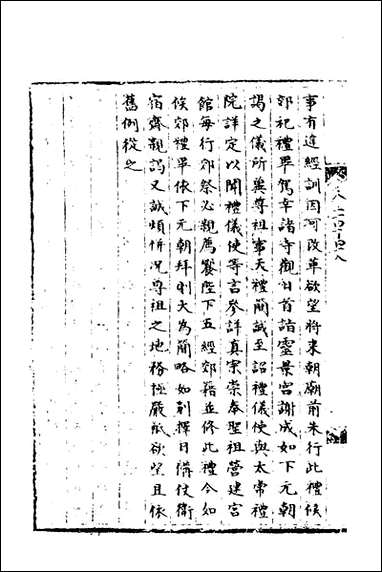 事有違經訓因何改革欲望將來朝廟前未行此禮候
郊祀禮畢駕幸諸寺觀日首詣靈景宮謝成如下元朝
謁之儀所冀尊祖事天禮簡誠至詔禮儀使與太常禮
院詳定以聞禮儀使等言參詳真宗崇奉聖祖營建宮
館每行郊祭必親薦饗陛下五經郊籍並修此禮今如
候郊禮畢依下元朝拜則大為簡略如別擇日備仗衛
宿齋觀謁又誠煩併况尊祖之地務極嚴祇欲望且依
舊例從之